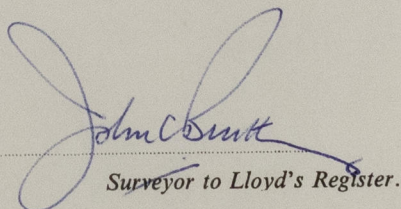 John C
Surveyor to Lloyd's Register.